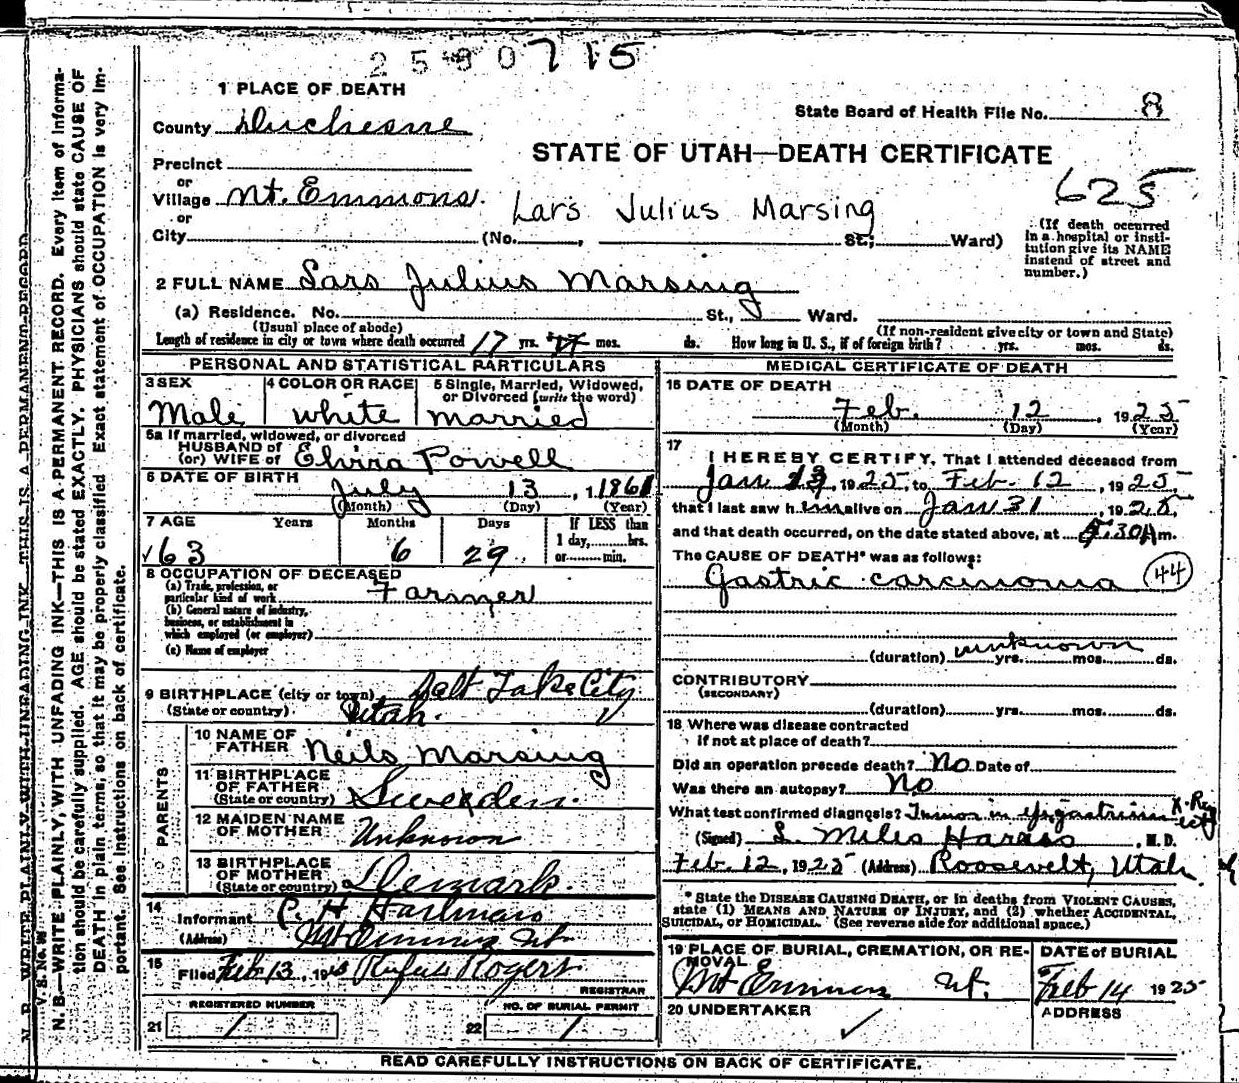 2590715
1 PLACE OF DEATH
State Board of Health File No. 8
County Duchesne
STATE OF UTAH—DEATH CERTIFICATE
Precinct
625
or
Village Mt. Emmons.
Lars Julius Marsing
or
City (No. , St.; Ward)
(If death occurred in a hospital or institution give its NAME instead of street and number.)
2 FULL NAME Lars Julius Marsing
(a) Residence. No. St., Ward.
(Usual place of abode)
(If non-resident give city or town and State)
Length of residence in city or town where death occurred 17 yrs. mos. ds. How long in U. S., if of foreign birth? yrs. mos. ds.
PERSONAL AND STATISTICAL PARTICULARS
3 SEX
Male
4 COLOR OR RACE
white
5 Single, Married, Widowed,
or Divorced (write the word)
married
5a If married, widowed, or divorced
HUSBAND of
(or) WIFE of Elvira Powell
6 DATE OF BIRTH
July 13, 1861
(Month) (Day) (Year)
7 AGE Years Months Days If LESS than
1 day, hrs.
or min.
63 6 29
8 OCCUPATION OF DECEASED
(a) Trade, profession, or
particular kind of work Farmer
(b) General nature of industry,
business, or establishment in
which employed (or employer)
(c) Name of employer
9 BIRTHPLACE (city or town) Salt Lake City
(State or country) Utah.
PARENTS
10 NAME OF
FATHER Neils Marsing
11 BIRTHPLACE
OF FATHER
(State or country) Sweeden.
12 MAIDEN NAME
OF MOTHER Unknown
13 BIRTHPLACE
OF MOTHER
(State or country) Demark.
14
Informant
(Address) Mt Emmons Ut.
15
Filed Feb 13, 19 Rufus Rogers
REGISTRAR
REGISTERED NUMBER
21 1
NO. OF BURIAL PERMIT
22 1
MEDICAL CERTIFICATE OF DEATH
16 DATE OF DEATH
Feb. 12, 1925
(Month) (Day) (Year)
17
I HEREBY CERTIFY, That I attended deceased from
Jan 1925, to Feb. 12, 1925,
that I last saw him alive on Jan 31, 1925,
and that death occurred, on the date stated above, at 30A m.
The CAUSE OF DEATH* was as follows:
Gastric carcinoma 44
(duration) unknown yrs. mos. ds.
CONTRIBUTORY
(SECONDARY)
(duration) yrs. mos. ds.
18 Where was disease contracted
if not at place of death?
Did an operation precede death? No Date of
Was there an autopsy? No
What test confirmed diagnosis? Tumor in X-Ray
(Signed) L. Miles , M. D.
Feb. 12, 1925 (Address) Roosevelt, Utah.
*State the DISEASE CAUSING DEATH, or in deaths from VIOLENT CAUSES,
state (1) MEANS AND NATURE OF INJURY, and (2) whether ACCIDENTAL,
SUICIDAL, or HOMICIDAL. (See reverse side for additional space.)
19 PLACE OF BURIAL, CREMATION, OR RE-
MOVAL
Mt Emmons Ut.
DATE of BURIAL
Feb 14 1925
20 UNDERTAKER
ADDRESS
READ CAREFULLY INSTRUCTIONS ON BACK OF CERTIFICATE.
N. B. WRITE PLAINLY WITH UNFADING INK THIS IS A PERMANENT RECORD
V. S. No.
N. B.—WRITE PLAINLY, WITH UNFADING INK—THIS IS A PERMANENT RECORD. Every item of informa-
tion should be carefully supplied. AGE should be stated EXACTLY. PHYSICIANS should state CAUSE OF
DEATH in plain terms, so that it may be properly classified. Exact statement of OCCUPATION is very im-
portant. See instructions on back of certificate.